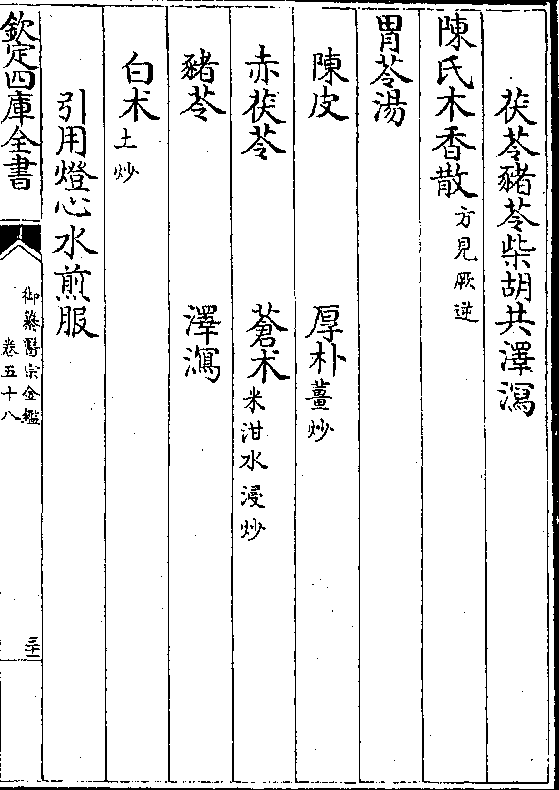 茯苓豬苓柴胡共澤瀉
陳氏木香散方見厥逆
胃苓湯
陳皮　厚朴薑炒
赤茯苓　蒼术米泔水浸炒
豬苓　澤瀉
白术土炒
引用燈心水煎服
欽定四庫全書
御纂醫宗金鑑
卷五十八
三十一